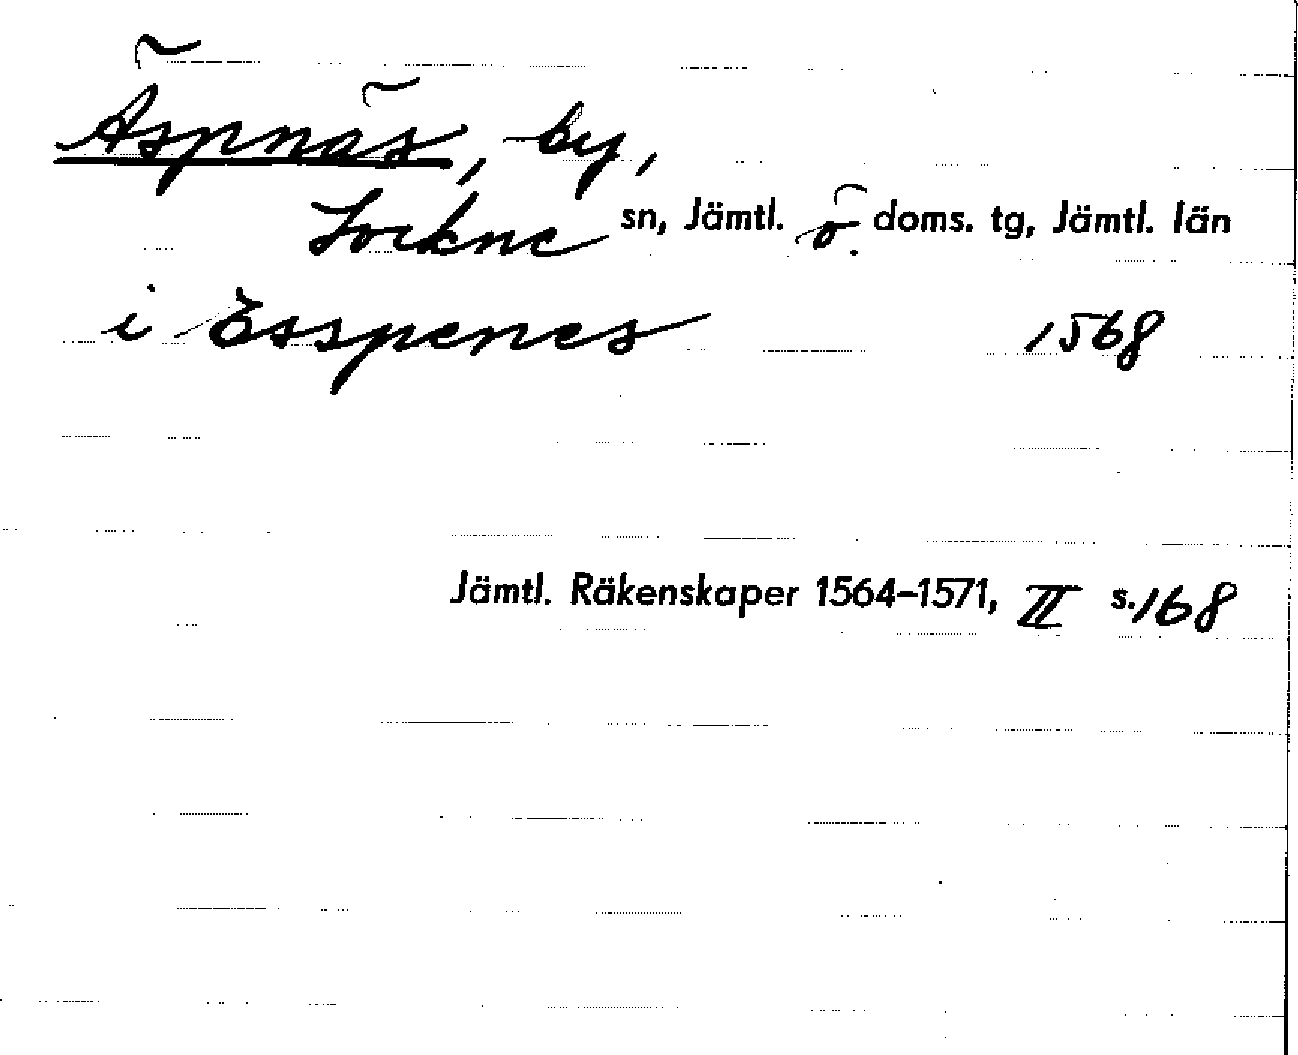 Äspnäs, by,
Lockne sn, Jämtl. ö. doms. tg, Jämtl. län
i Esspenes 1568
Jämtl. Räkenskaper 1564–1571, II s. 168